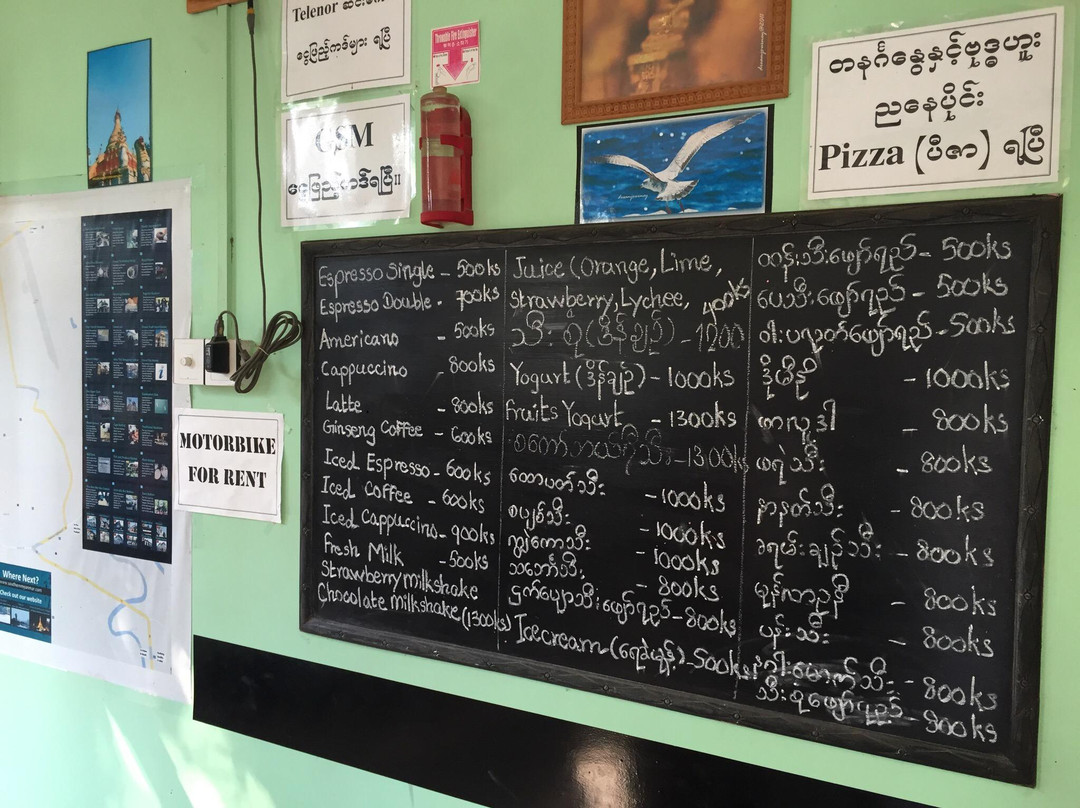 Telenor ဆင်းမ်
ငွေဖြည့်ကဒ်များ ရပြီ
Throwable Fire Extinguisher
GSM
ငွေဖြည့်ကဒ်ရပြီ။
တနင်္ဂနွေနှင့်ဗုဒ္ဓဟူး
ညနေပိုင်း
Pizza (ပီဇာ) ရပြီ
MOTORBIKE
FOR RENT
Where Next?
Check out our website
Espresso Single - 500ks
Espresso Double - 700ks
Americano - 500ks
Cappuccino - 800ks
Latte - 800ks
Ginseng Coffee - 600ks
Iced Espresso - 600ks
Iced Coffee - 600ks
Iced Cappuccino - 900ks
Fresh Milk - 500ks
Strawberry milkshake
Chocolate Milkshake (1300ks)
Juice (Orange, Lime,
Strawberry, Lychee, 400ks
သီးစုံ (ဒိန်ချဉ်) - 1200
Yogurt (ဒိန်ချဉ်) - 1000ks
Fruits Yogurt - 1300ks
စတော်ဘယ်ရီသီး - 1300ks
ထောပတ်သီး - 1000ks
စပျစ်သီး - 1000ks
ငှက်ပျောသီး - 1000ks
သင်္ဘောသီး - 800ks
ငှက်ပျောသီးဖျော်ရည် - 800ks
Icecream (ရေခဲမုန့်) - 500ks
ထန်းသီးဖျော်ရည် - 500ks
ပေသီးဖျော်ရည် - 500ks
ဖါးပလုတ်ဖျော်ရည် - 500ks
- 1000ks
ဖာလူဒါ - 800ks
ဖရဲသီး - 800ks
နာနတ်သီး - 800ks
ခရမ်းချဉ်သီး - 800ks
မုန်လာဥနီ - 800ks
ပန်းသီး - 800ks
နဂါးမောက်သီး - 800ks
သီးစုံဖျော်ရည် - 900ks